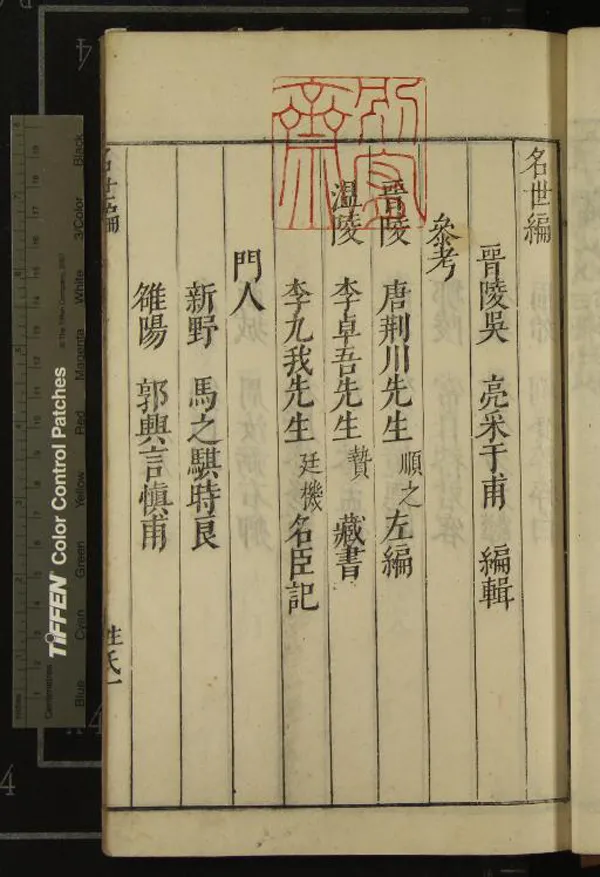 名世編
晉陵吳 亮采于甫 編輯
參考
晉陵 唐荆川先生 順之 左編
溫陵 李卓吾先生 贄 藏書
李九我先生 廷機 名臣記
門人
新野 馬之騏時良
雒陽 郭興言愼甫
名世編
姓氏一
TIFFEN Color Control Patches
© The Tiffen Company, 2007
Centimetres
Inches
Blue
Cyan
Green
Yellow
Red
Magenta
White
3/Color
Black